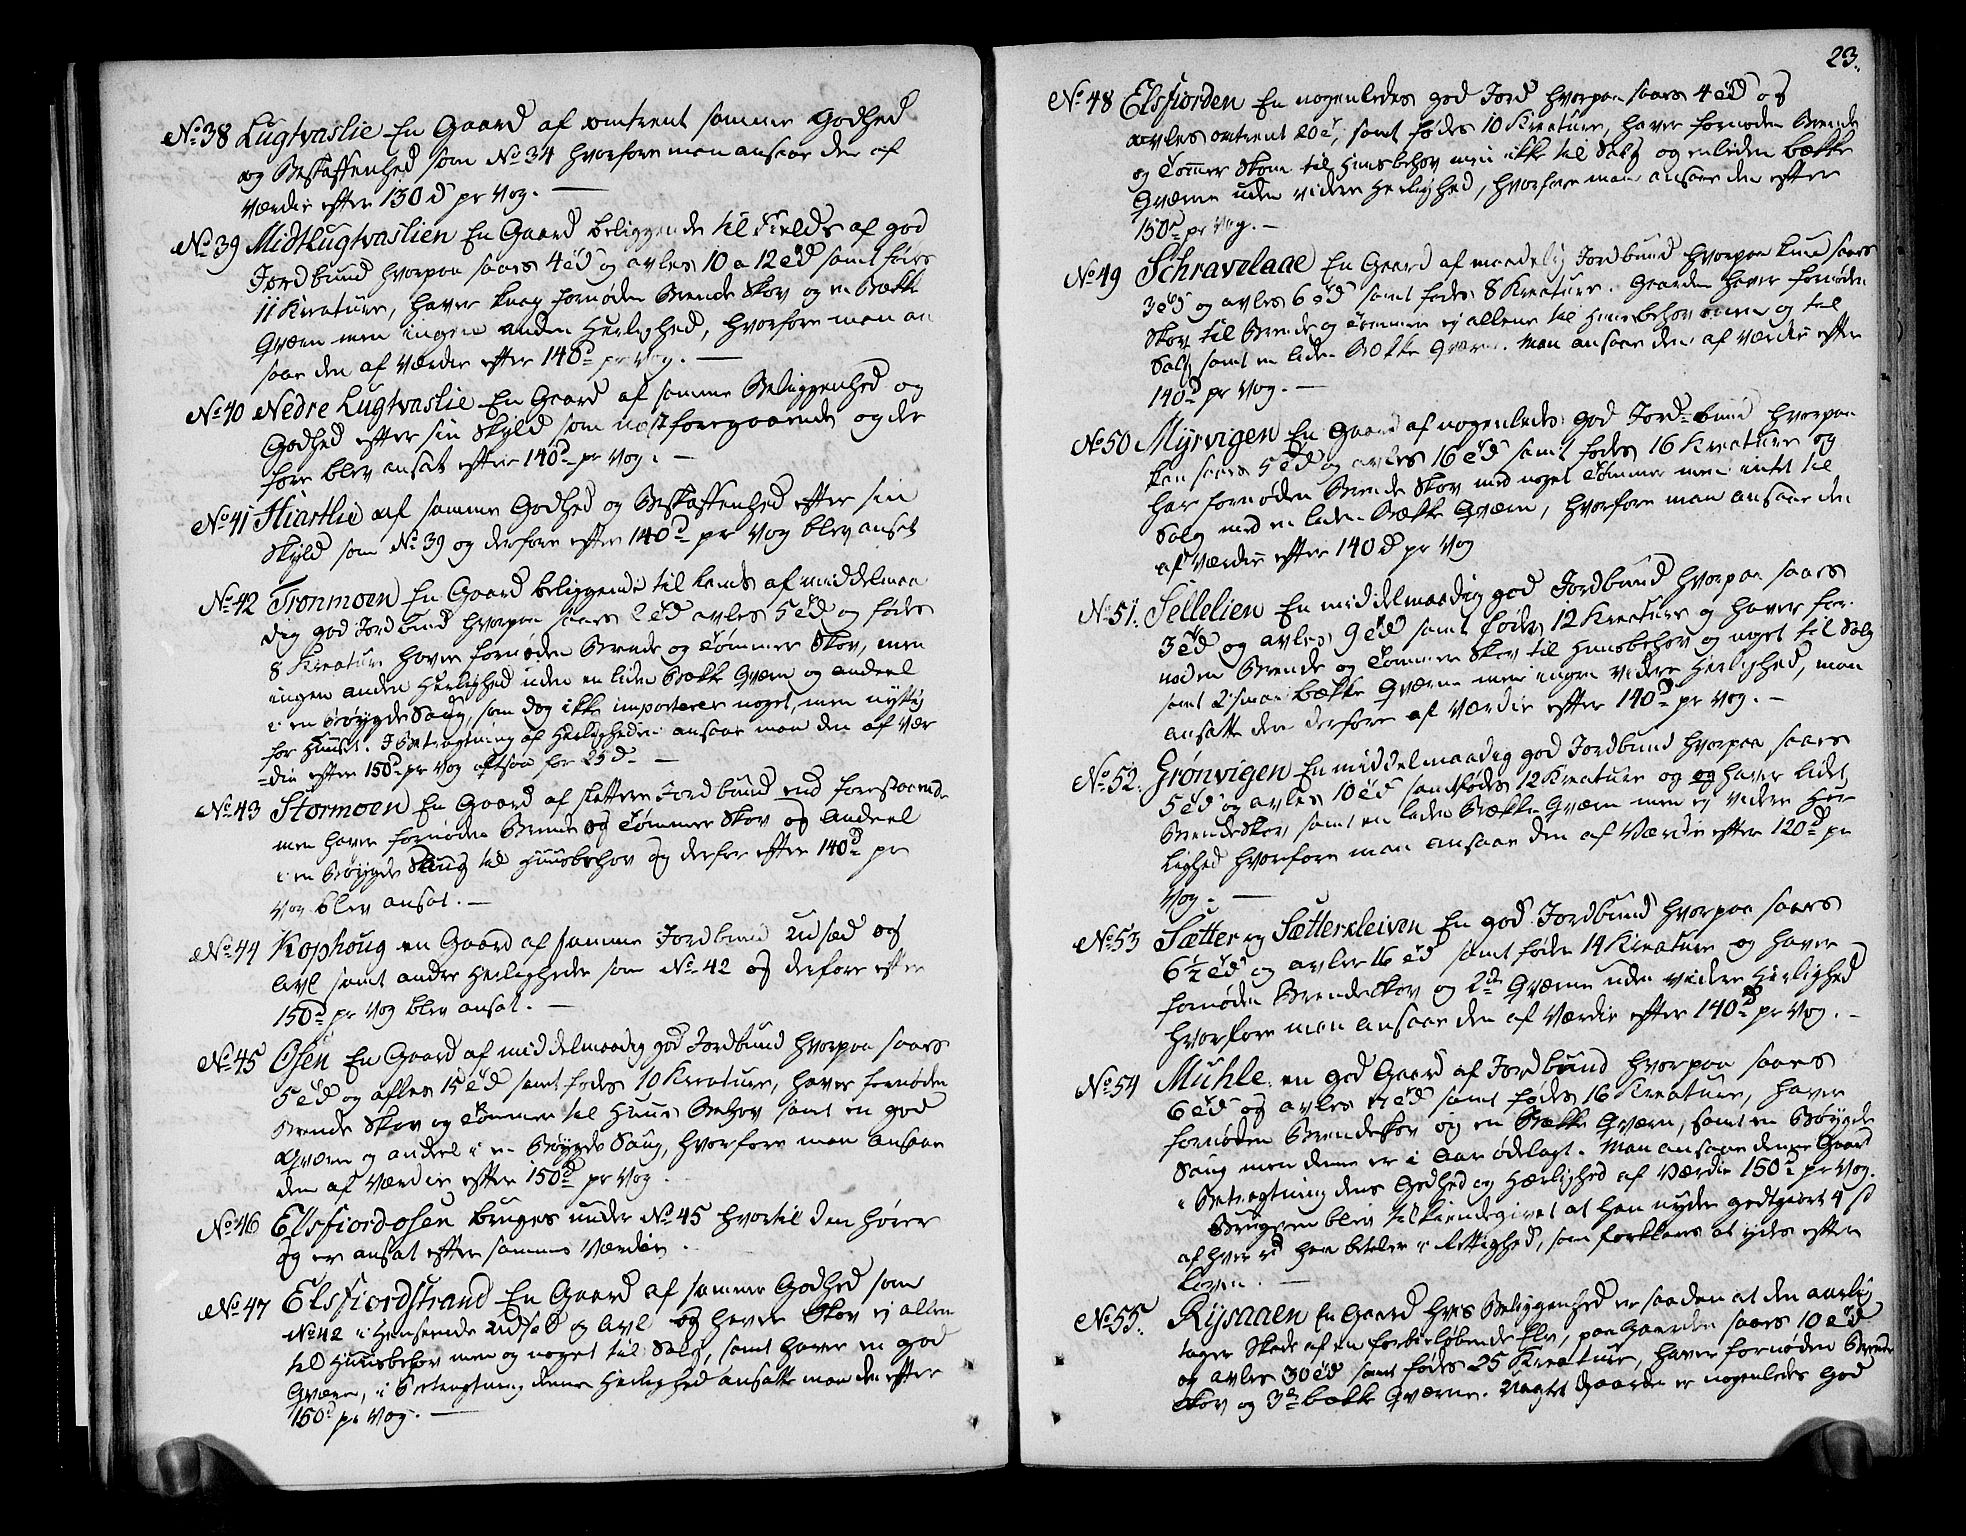 No 38 Lugtvaslie En Gaard af omtrent samme Godhed
og Beskaffenhed som No 34 hvorfore man ansaae den af
Værdie efter 130 d pr Vog. —
No 39 Midtlugtvaslien En Gaard beliggende til Fields af god
Jordbund hvorpaa saaes 4 td og avles 10 a 12 td samt föes
11 Kreature, haver knap fornøden Brende Skov og en Bække
Qværn men ingen anden Herlighed, hvorfore man an
saae den af Værdie efter 140 d pr Vog. —
No 40 Nedre Lugtvaslie En Gaard af samme Beliggenhed og
Godhed efter sin Skyld som næstforegaaende og der
fore blev ansat efter 140 d pr Vog. —
No 41 Hiartlie af samme Godhed og Beskaffenhed efter sin
Skyld som No 39 og derfore efter 140 d pr Vog blev ansat
No 42 Tronmoen En Gaard beliggende til Lands af middelmaa
dig god Jordbund hvorpaa saaes 2 td avles 5 td og födes
8 Kreature haver fornøden Brende og Tømmer Skov, men
ingen anden Herlighed uden en liden Bække Qværn og andeel
i en Bøygde Saug, som dog ikke importerer noget, men nyttig
for Huuset. I Betragtning af Herligheden ansaae man den af Vær
die efter 150 d pr Vog altsaa for 25 d —
No 43 Stormoen En Gaard af slettere Jordbund end forestaaende
men haver fornøden Brende og Tömmer Skov og Andeel
i en Bøygde Saug til Huusbehov og derfor efter 140 d pr
Vog blev ansat. —
No 44 Kophoug en Gaard af samme Jordbund Udsæd og
Avl samt andre Herligheder som No 42 og derfore efter
150 d pr Vog blev ansat. —
No 45 Osen En Gaard af middelmaadig god Jordbund hvorpaa saaes
5 td og afles 15 td samt födes 10 Kreature, haver fornøden
Brende Skov og Tömmer til Huus Behov samt en god
Qværn og andeel i en Bøygde Saug, hvorfore man ansaae
den af Værdie efter 150 d pr Vog.
No 46 Elsfiordosen bruges under No 45 hvortil den hører
og er ansat efter samme Værdie.
No 47 Elsfiordstrand En Gaard af samme Godhed som
No 42 i Henseende Udsæd og Avl og havde Skov ej allene
til Huusbehov men og noget til Salg, samt haver en god
Qværn, i Betragtning denne Herlighed ansatte man den efter
150 d pr Vog. —
23.
No 48 Elsfiorden En nogenledes god Jord hvorpaa saaes 4 td og
avles omtrent 20 t, samt födes 10 Kreature, haver fornøden Brende
og Tömmer Skov til Huusbehov men ikke til Salg og en liden bække
Qværn uden videre Herlighed, hvorfore man ansaae den efter
150 d pr Vog. —
No 49 Schravelaae En Gaard af maadelig Jordbund hvorpaa kund saaes
3 td og avles 6 td samt födes 8 Kreature. Gaarden haver fornøden
Skov til Brende og Tömmer ej allene til Huusbehov men og til
Salg samt en liden Bække Qværn. Man ansaae den af Værdie efter
140 d pr Vog. —
No 50 Myrvigen En Gaard af nogenledes god Jordbund hvorpaa
kan saaes 5 td og avles 16 td samt födes 16 Kreature og
har fornøden Brende Skov med noget Tömmer men intet til
Salg med en liden Bække Qværn, hvorfore man ansaae den
af Værdie efter 140 d pr Vog
No 51. Sellelien En middelmaadig god Jordbund hvorpaa saaes
3 td og avles 9 td samt födes 12 Kreature og haver for
nøden Brende og Tömmer Skov til Huusbehov og noget til Salg
samt 2 smaae bække Qværne men ingen videre Herlighed, man
ansatte den derfore af Værdie efter 140 d pr Vog. —
No 52. Grønvigen En middelmaadig god Jordbund hvorpaa saaes
5 td og avles 10 td samt födes 12 Kreature og og haver lidet
Brendeskov samt en liden Bække Qværn men ej videre Her
lighed hvorfore man ansaae den af Værdie efter 120 d pr
Vog. —
No 53 Sætter og Sætterkleiven En god Jordbund hvorpaa saaes
6½ td og avler 16 td samt föder 14 Kreature og haver
fornøden Brendeskov og 2de Qværne uden videre Herlighed
hvorfore man ansaae den af Værdie efter 140 d pr Vog. —
No 54 Muhle en god Gaard af Jordbund hvorpaa saaes
6 td og avles 17 td samt födes 16 Kreature, haver
fornøden Brendeskov og en Bække Qværn, samt en Bøygde
Saug men denne er i Aar ødelagt. Man ansaae denne Gaard
i Betragtning dens Godhed og Herlighed af Værdie 150 d pr Vog.
Brugeren blev tilkiendegivet at han nyder godtgiort 4 s
af hver rd han betaler i Rettighed, som forklares at ydes efter
Loven. —
No 55. Rijsaaen En Gaard hvis Beliggenhed er saadan at den aarlig
tager Skade af en forbieløbende Elv, paa Gaarden saaes 10 td
og avles 30 td samt födes 25 Kreature, haver fornøden Brende
Skov og 3de bække Qværne. Uagtet Gaarden er nogenledes god